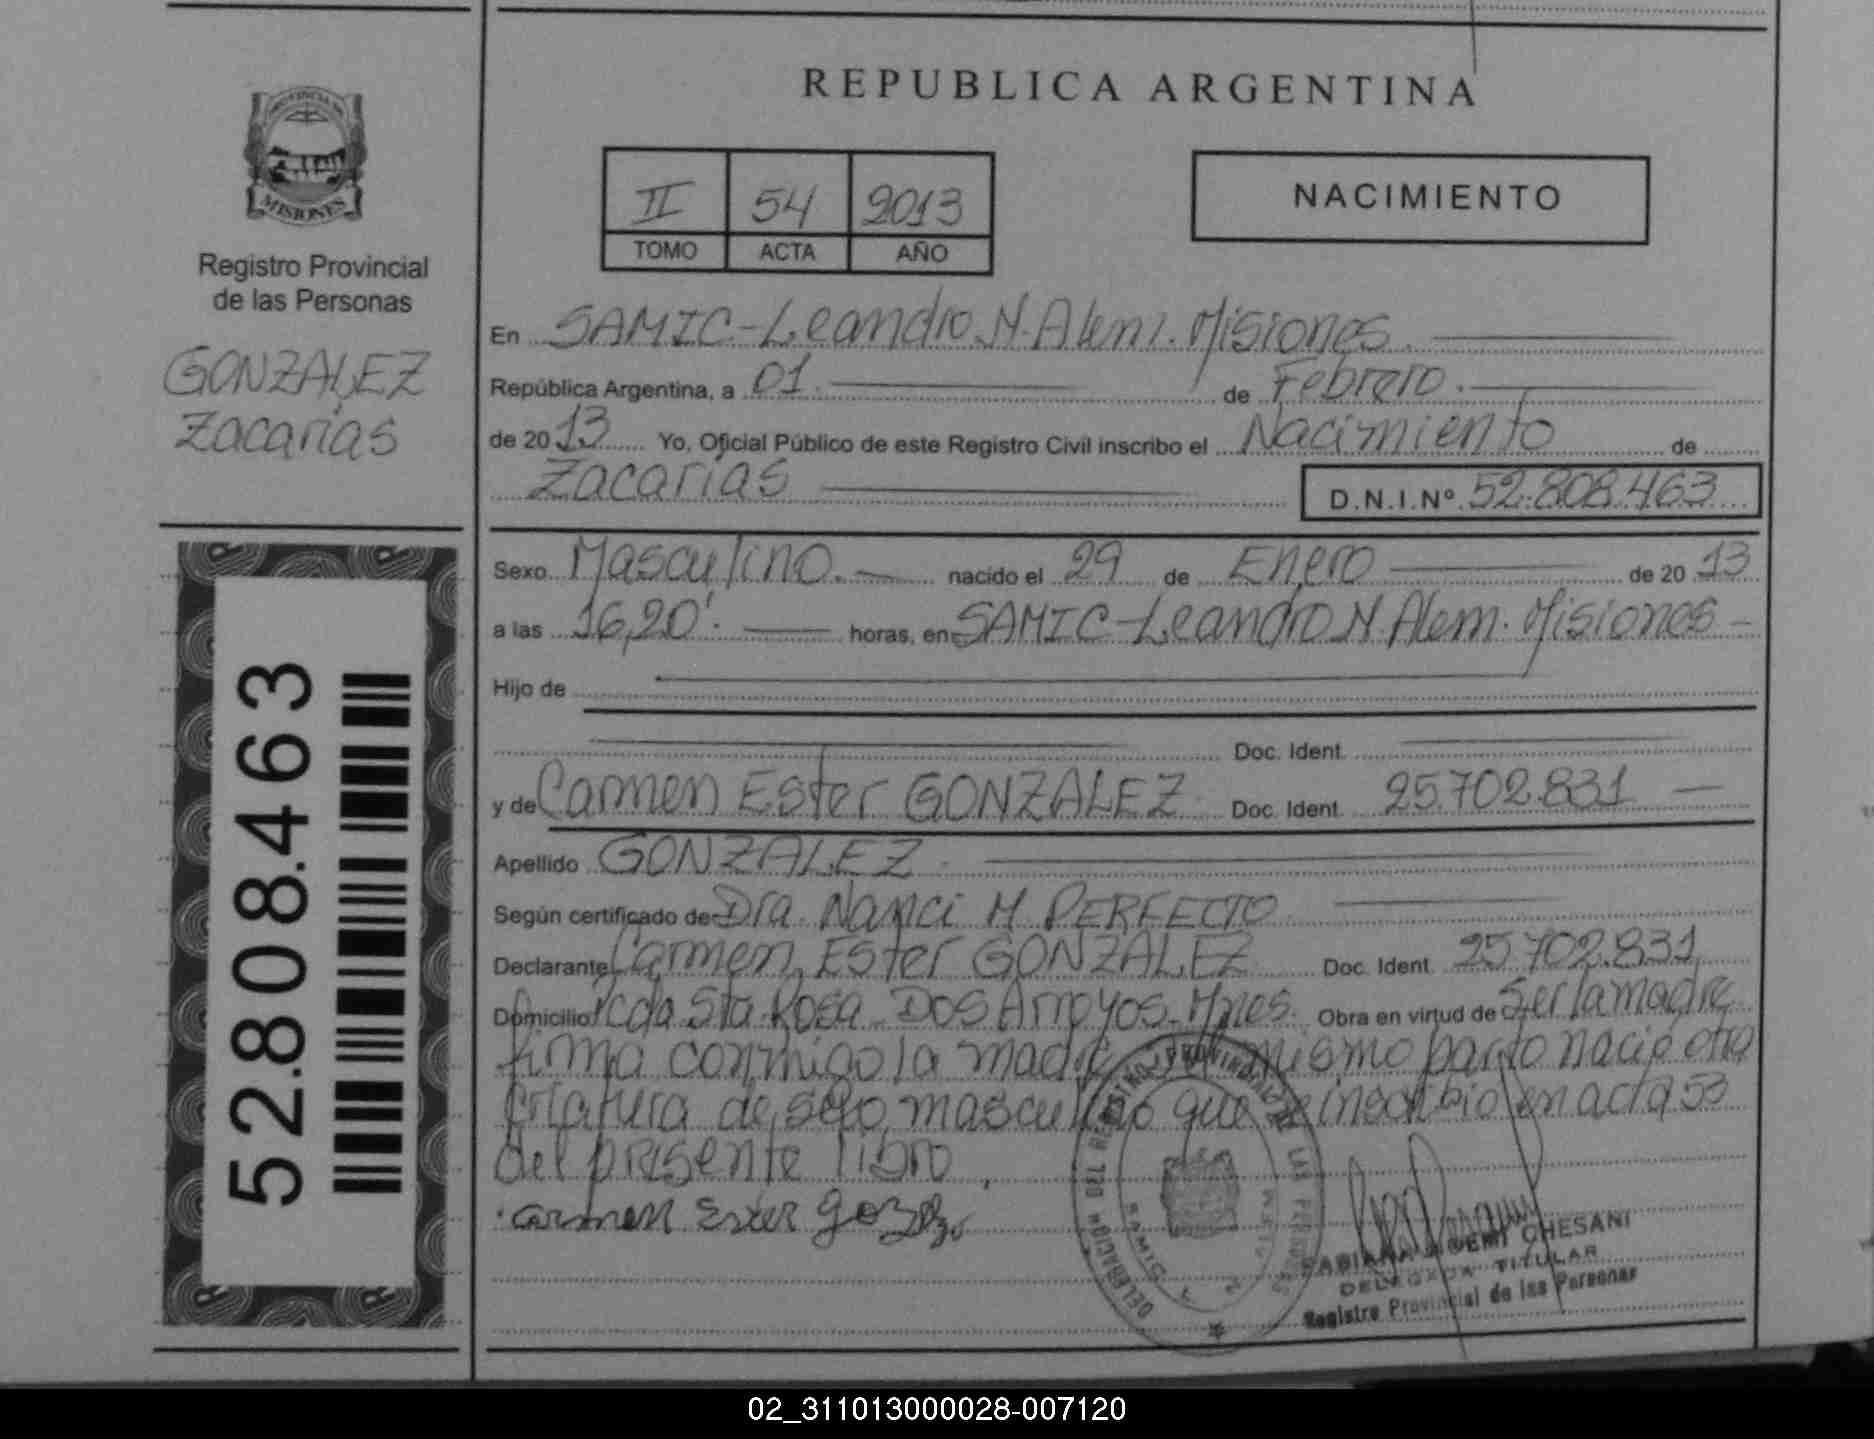 REPUBLICA ARGENTINA
PROVINCIA DE
MISIONES
Registro Provincial
de las Personas
GONZALEZ
Zacarias
52.808.463
II 54 2013
TOMO ACTA AÑO
NACIMIENTO
En SAMIC-Leandro N. Alem. Misiones.
República Argentina, a 01. de Febrero.
de 2013 Yo, Oficial Público de este Registro Civil inscribo el Nacimiento de
Zacarias D.N.I.Nº 52.808.463
Sexo Masculino. nacido el 29 de Enero de 2013
a las 16,20'. horas, en SAMIC-Leandro N. Alem. Misiones
Hijo de
Doc. Ident.
y de Carmen Ester GONZALEZ. Doc. Ident. 25.702.831
Apellido GONZALEZ.
Según certificado de Dra. Nanci M. PERFECTO
Declarante Carmen Ester GONZALEZ Doc. Ident. 25.702.831
Domicilio Pcda Sta. Rosa Dos Arroyos. Mnes. Obra en virtud de Ser la madre
firma conmigo la madre mismo parto nació otra
criatura de sexo masculino que se inscribio en acta 53
del presente libro.
Carmen Ester
DELEGACION DEL REGISTRO PROVINCIAL DE LAS PERSONAS
SAMIC
FABIANA NOEMI CHESANI
DELEGADA TITULAR
Registro Provincial de las Personas
02_311013000028-007120